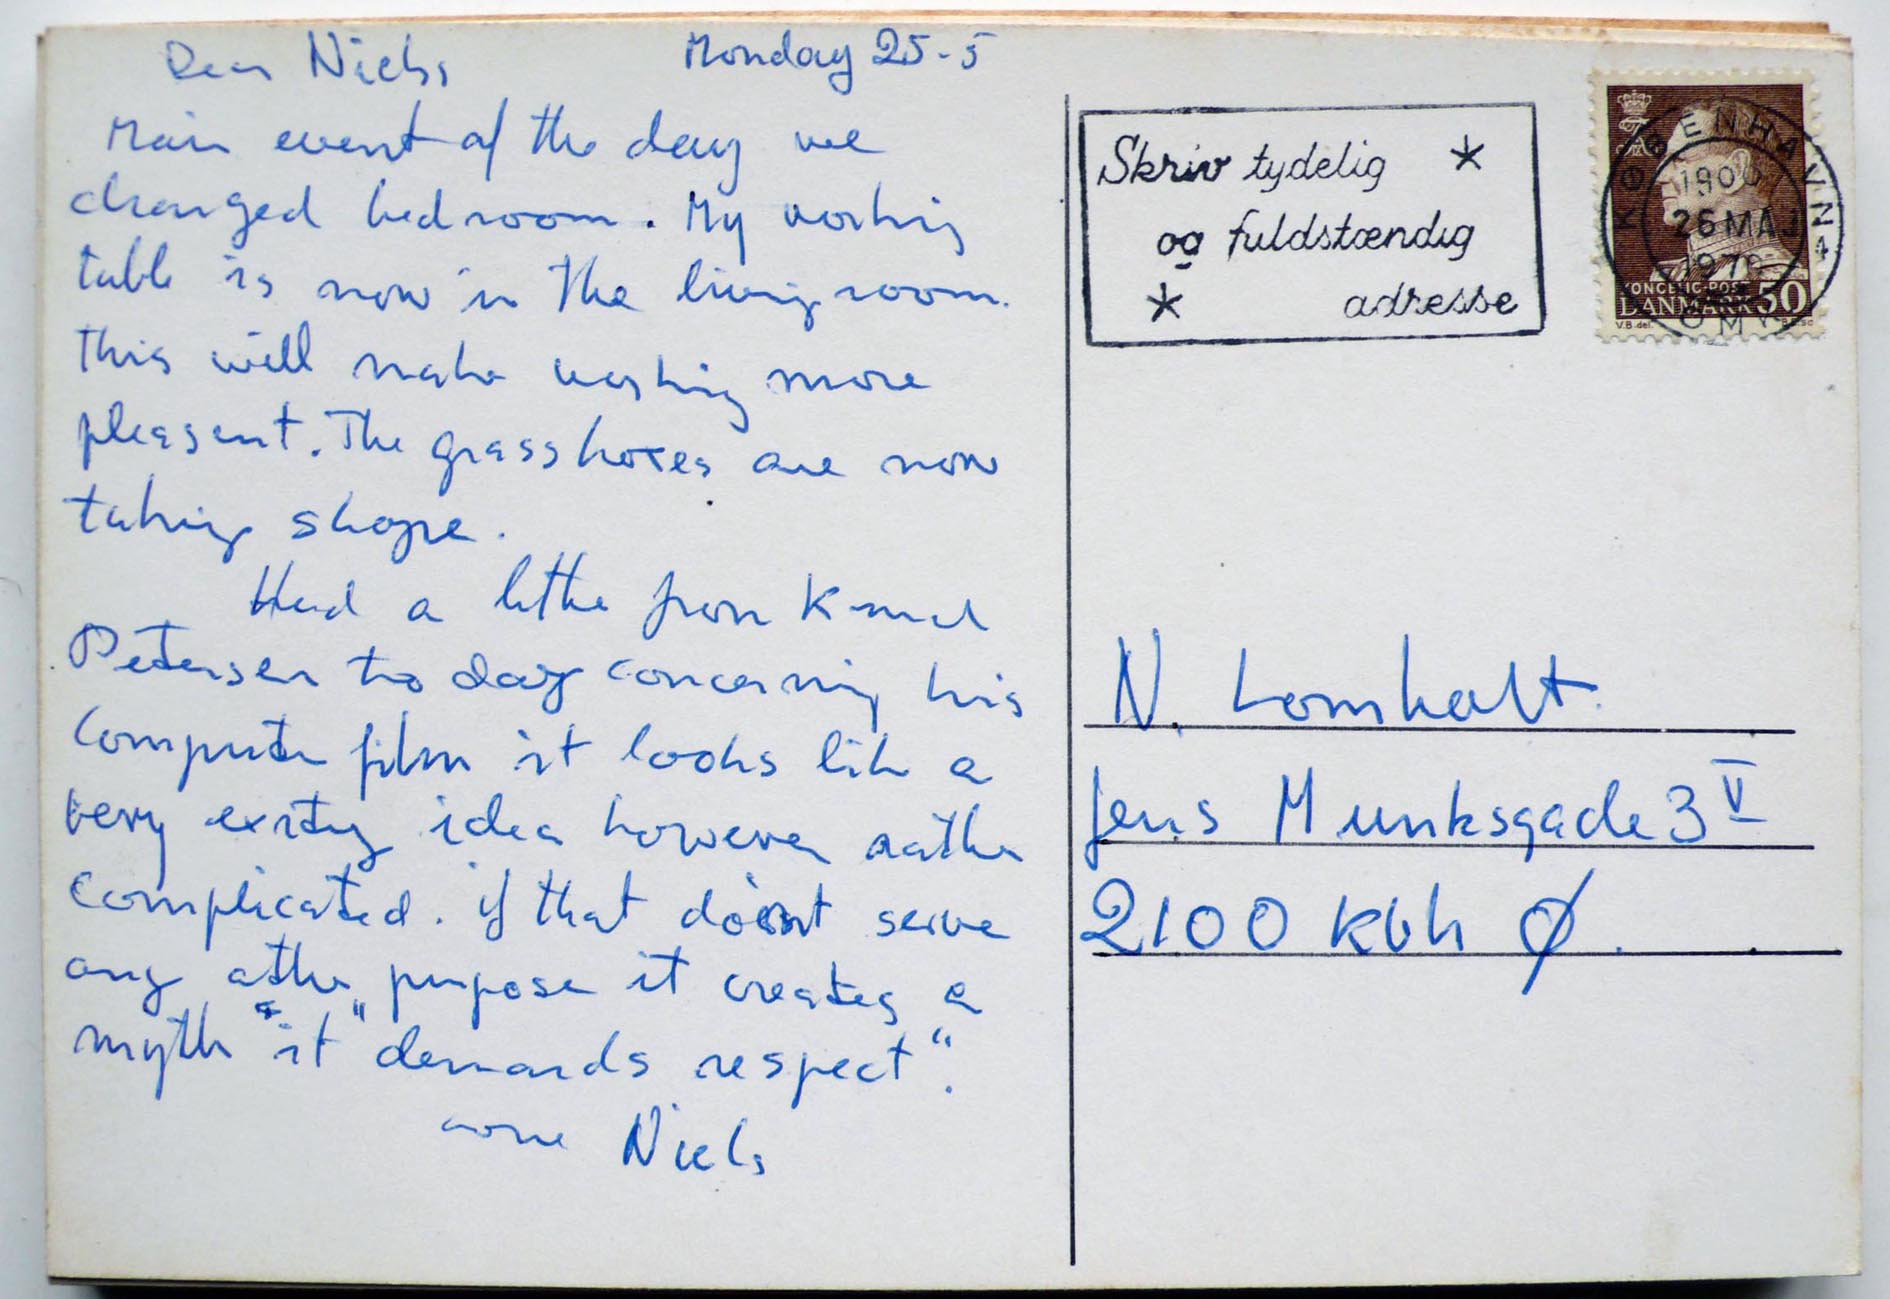 Dear Niels Monday 25-5
Main event of the day we
changed bedroom. My working
table is now in the living room.
this will make working more
pleasent. The grassboxes are now
taking shape.
Had a letter from Knud
Petersen to day concerning his
Computer film it looks like a
very exiting idea however rather
complicated. if that doesnt serve
any other purpose it creates a
myth "it "demands respect".
Niels
Skriv tydelig
og fuldstændig
adresse
KØBENHAVN
1900
26 MAJ
1970
OMK
KONGELIG-POST
DANMARK 50
V.B. del.
N. Lomholt.
Jens Munksgade 3 V
2100 Kbh Ø.